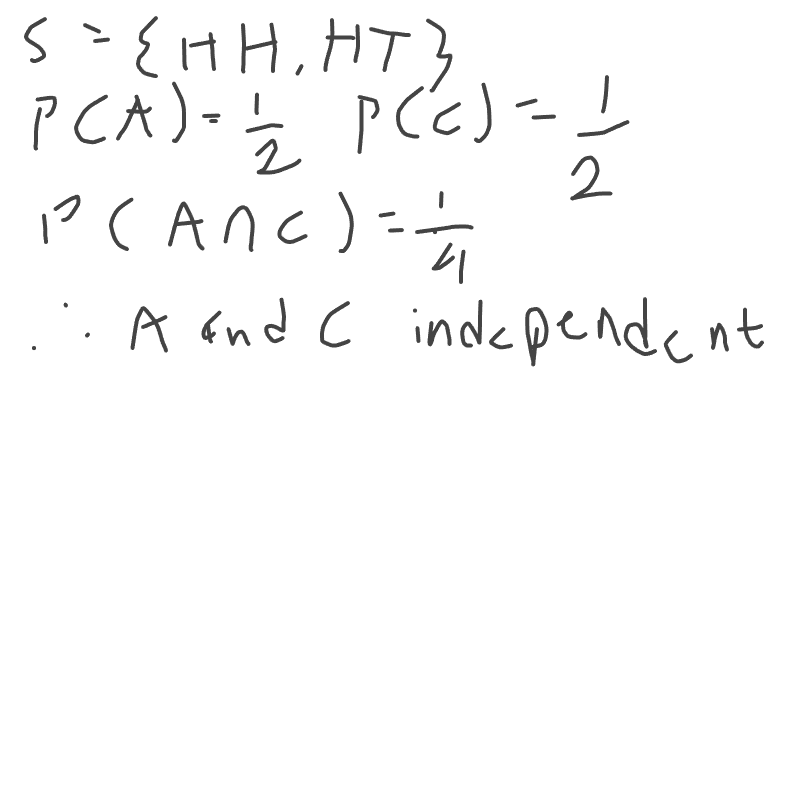 S = {HH, HT}
P(A) = 1/2 P(C) = 1/2
P(A∩C) = 1/4
∴ A and C independent